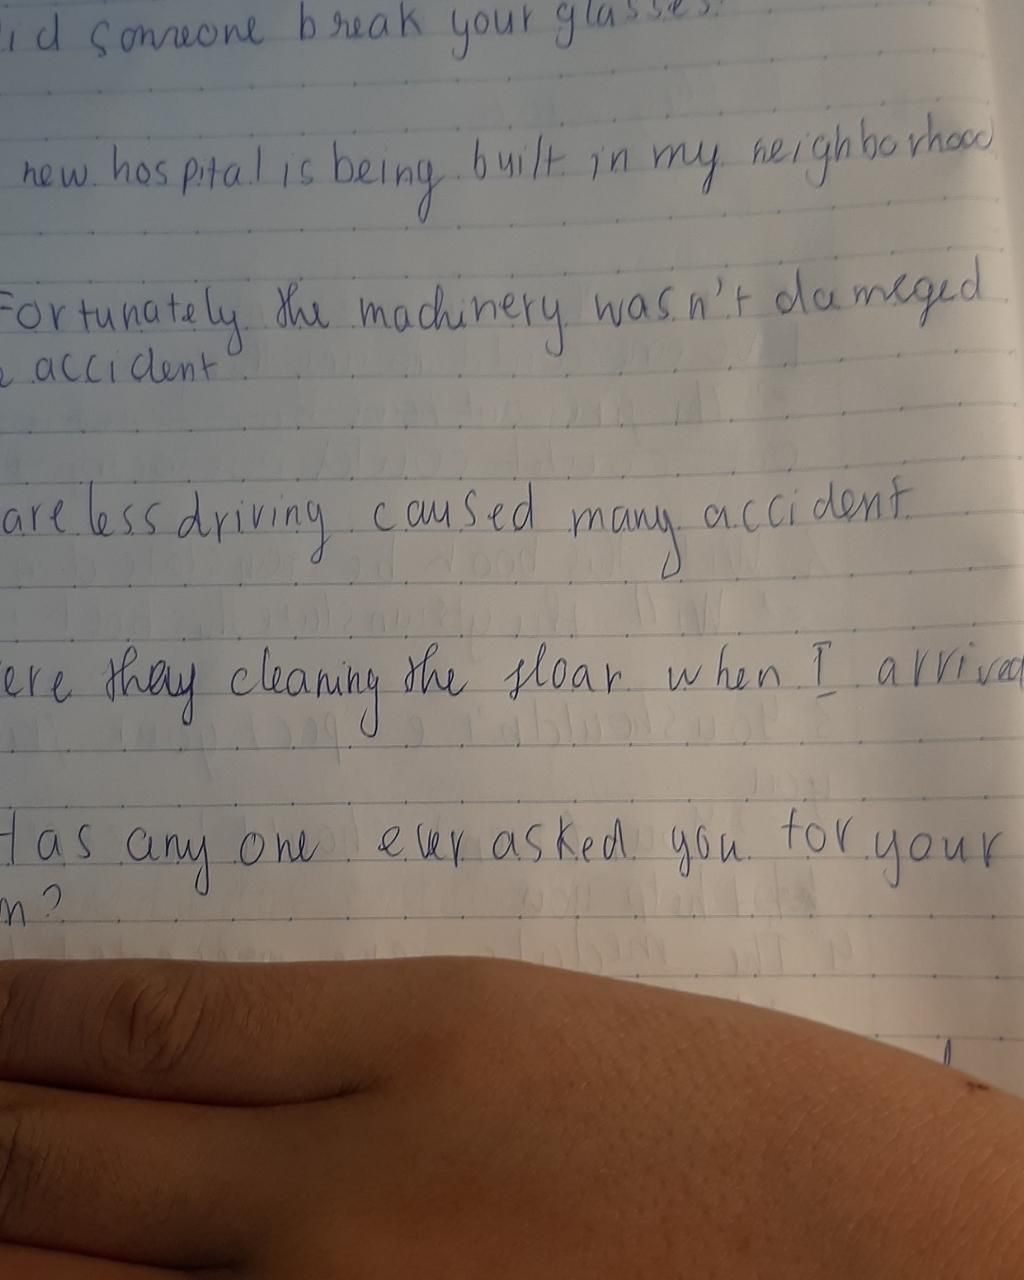 id someone break your glasses.
new hospital is being built in my neighborhood
Fortunately the machinery wasn't dameged
e accident
are less driving caused many accident
ere they cleaning the floar when I arrived
Has any one ever asked you for your
n?